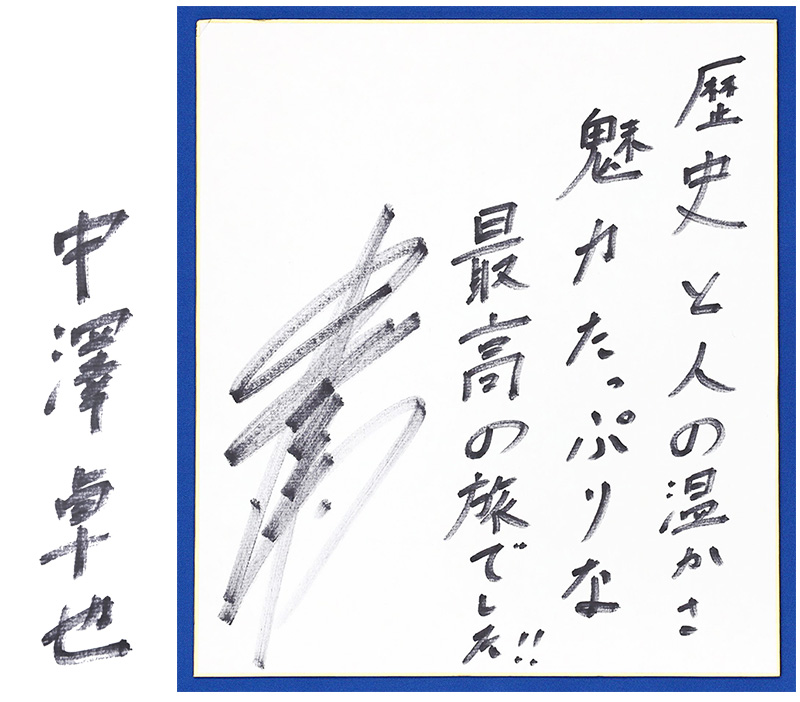 歴史と人の温かさ
魅力たっぷりな
最高の旅でした!!
中澤卓也